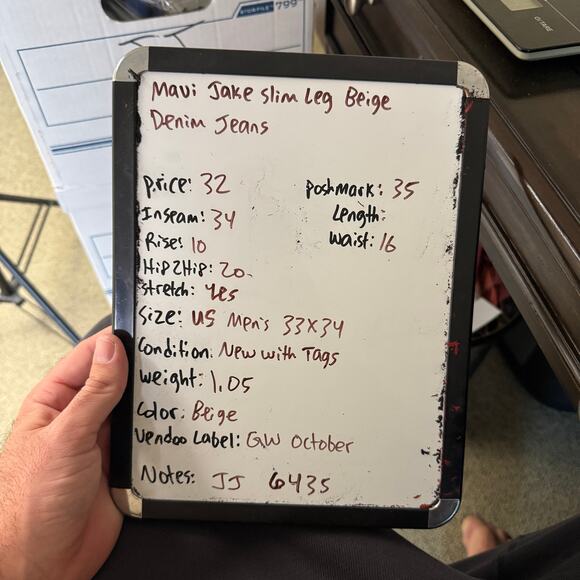 STOR/FILE™ 799
Mavi Jake Slim Leg Beige
Denim Jeans
Price: 32
Poshmark: 35
Inseam: 34
Length:
Rise: 10
Waist: 16
Hip2Hip: 20
Stretch: Yes
Size: US Men's 33x34
Condition: New with Tags
Weight: 1.05
Color: Beige
Vendoo Label: GW October
Notes: JJ 6435